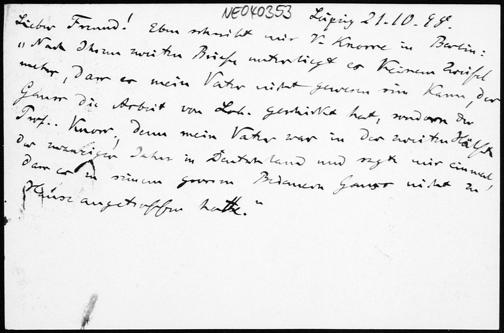 NE040353
Leipzig 21-10-98.
Lieber Freund! Eben schreibt mir V. Knorre in Berlin:
"Nach Ihrem zweiten Briefe unterliegt es keinem Zweifel
mehr, dass es mein Vater nicht gewesen sein kann, der
Gauss die Arbeit von Lob. geschickt hat, sondern der
Prof. Knorr, denn mein Vater war in der zweiten Hälfte
der zwanziger Jahre in Deutschland und sagt mir einmal,
dass er zu seinem grossen Bedauern Gauss nicht zu
Hause angetroffen hatte."